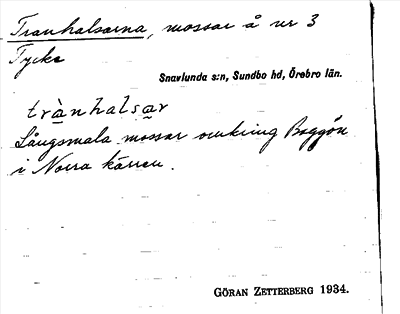 Tranhalsarna, mossar å nr 3
Tycke
Snavlunda s:n, Sundbo hd, Örebro län.
trànhalsar
Långsmala mossar omkring Baggön
i Norra kärren.
GÖRAN ZETTERBERG 1934.